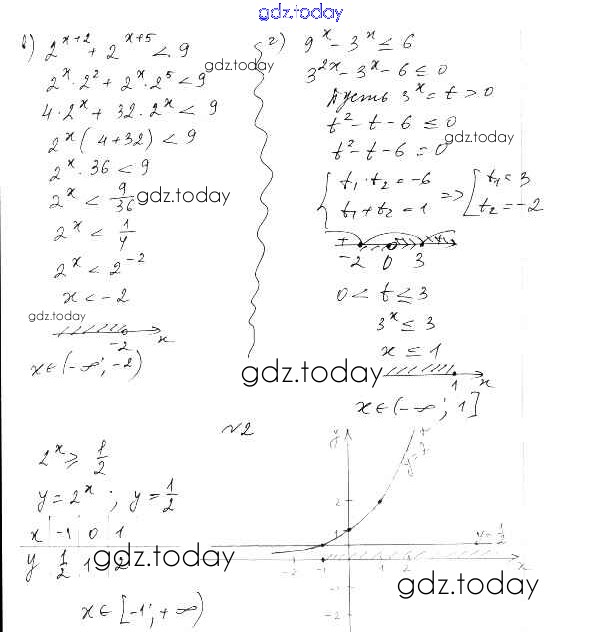 gdz.today
в) 2^{x+2} + 2^{x+5} < 9
2^x · 2^2 + 2^x · 2^5 < 9
gdz.today
4 · 2^x + 32 · 2^x < 9
2^x (4+32) < 9
2^x · 36 < 9
2^x < 9/36
gdz.today
2^x < 1/4
2^x < 2^{-2}
x < -2
gdz.today
-2 x
x ∈ (-∞; -2)
г) 9^x - 3^x ≤ 6
3^{2x} - 3^x - 6 ≤ 0
Пусть 3^x = t > 0
t^2 - t - 6 ≤ 0
gdz.today
t^2 - t - 6 = 0
{ t1 · t2 = -6 => [ t1 = 3
t1 + t2 = 1 t2 = -2
+ - +
-2 0 3
0 < t ≤ 3
3^x ≤ 3
x ≤ 1
gdz.today
1 x
x ∈ (-∞; 1]
№2
2^x ≥ 1/2
y = 2^x ; y = 1/2
x -1 0 1
y 1/2 1 2
gdz.today
x ∈ [-1; +∞)
y
2
y = 1/2
-2 -1 1 2 x
gdz.today
-1
-2